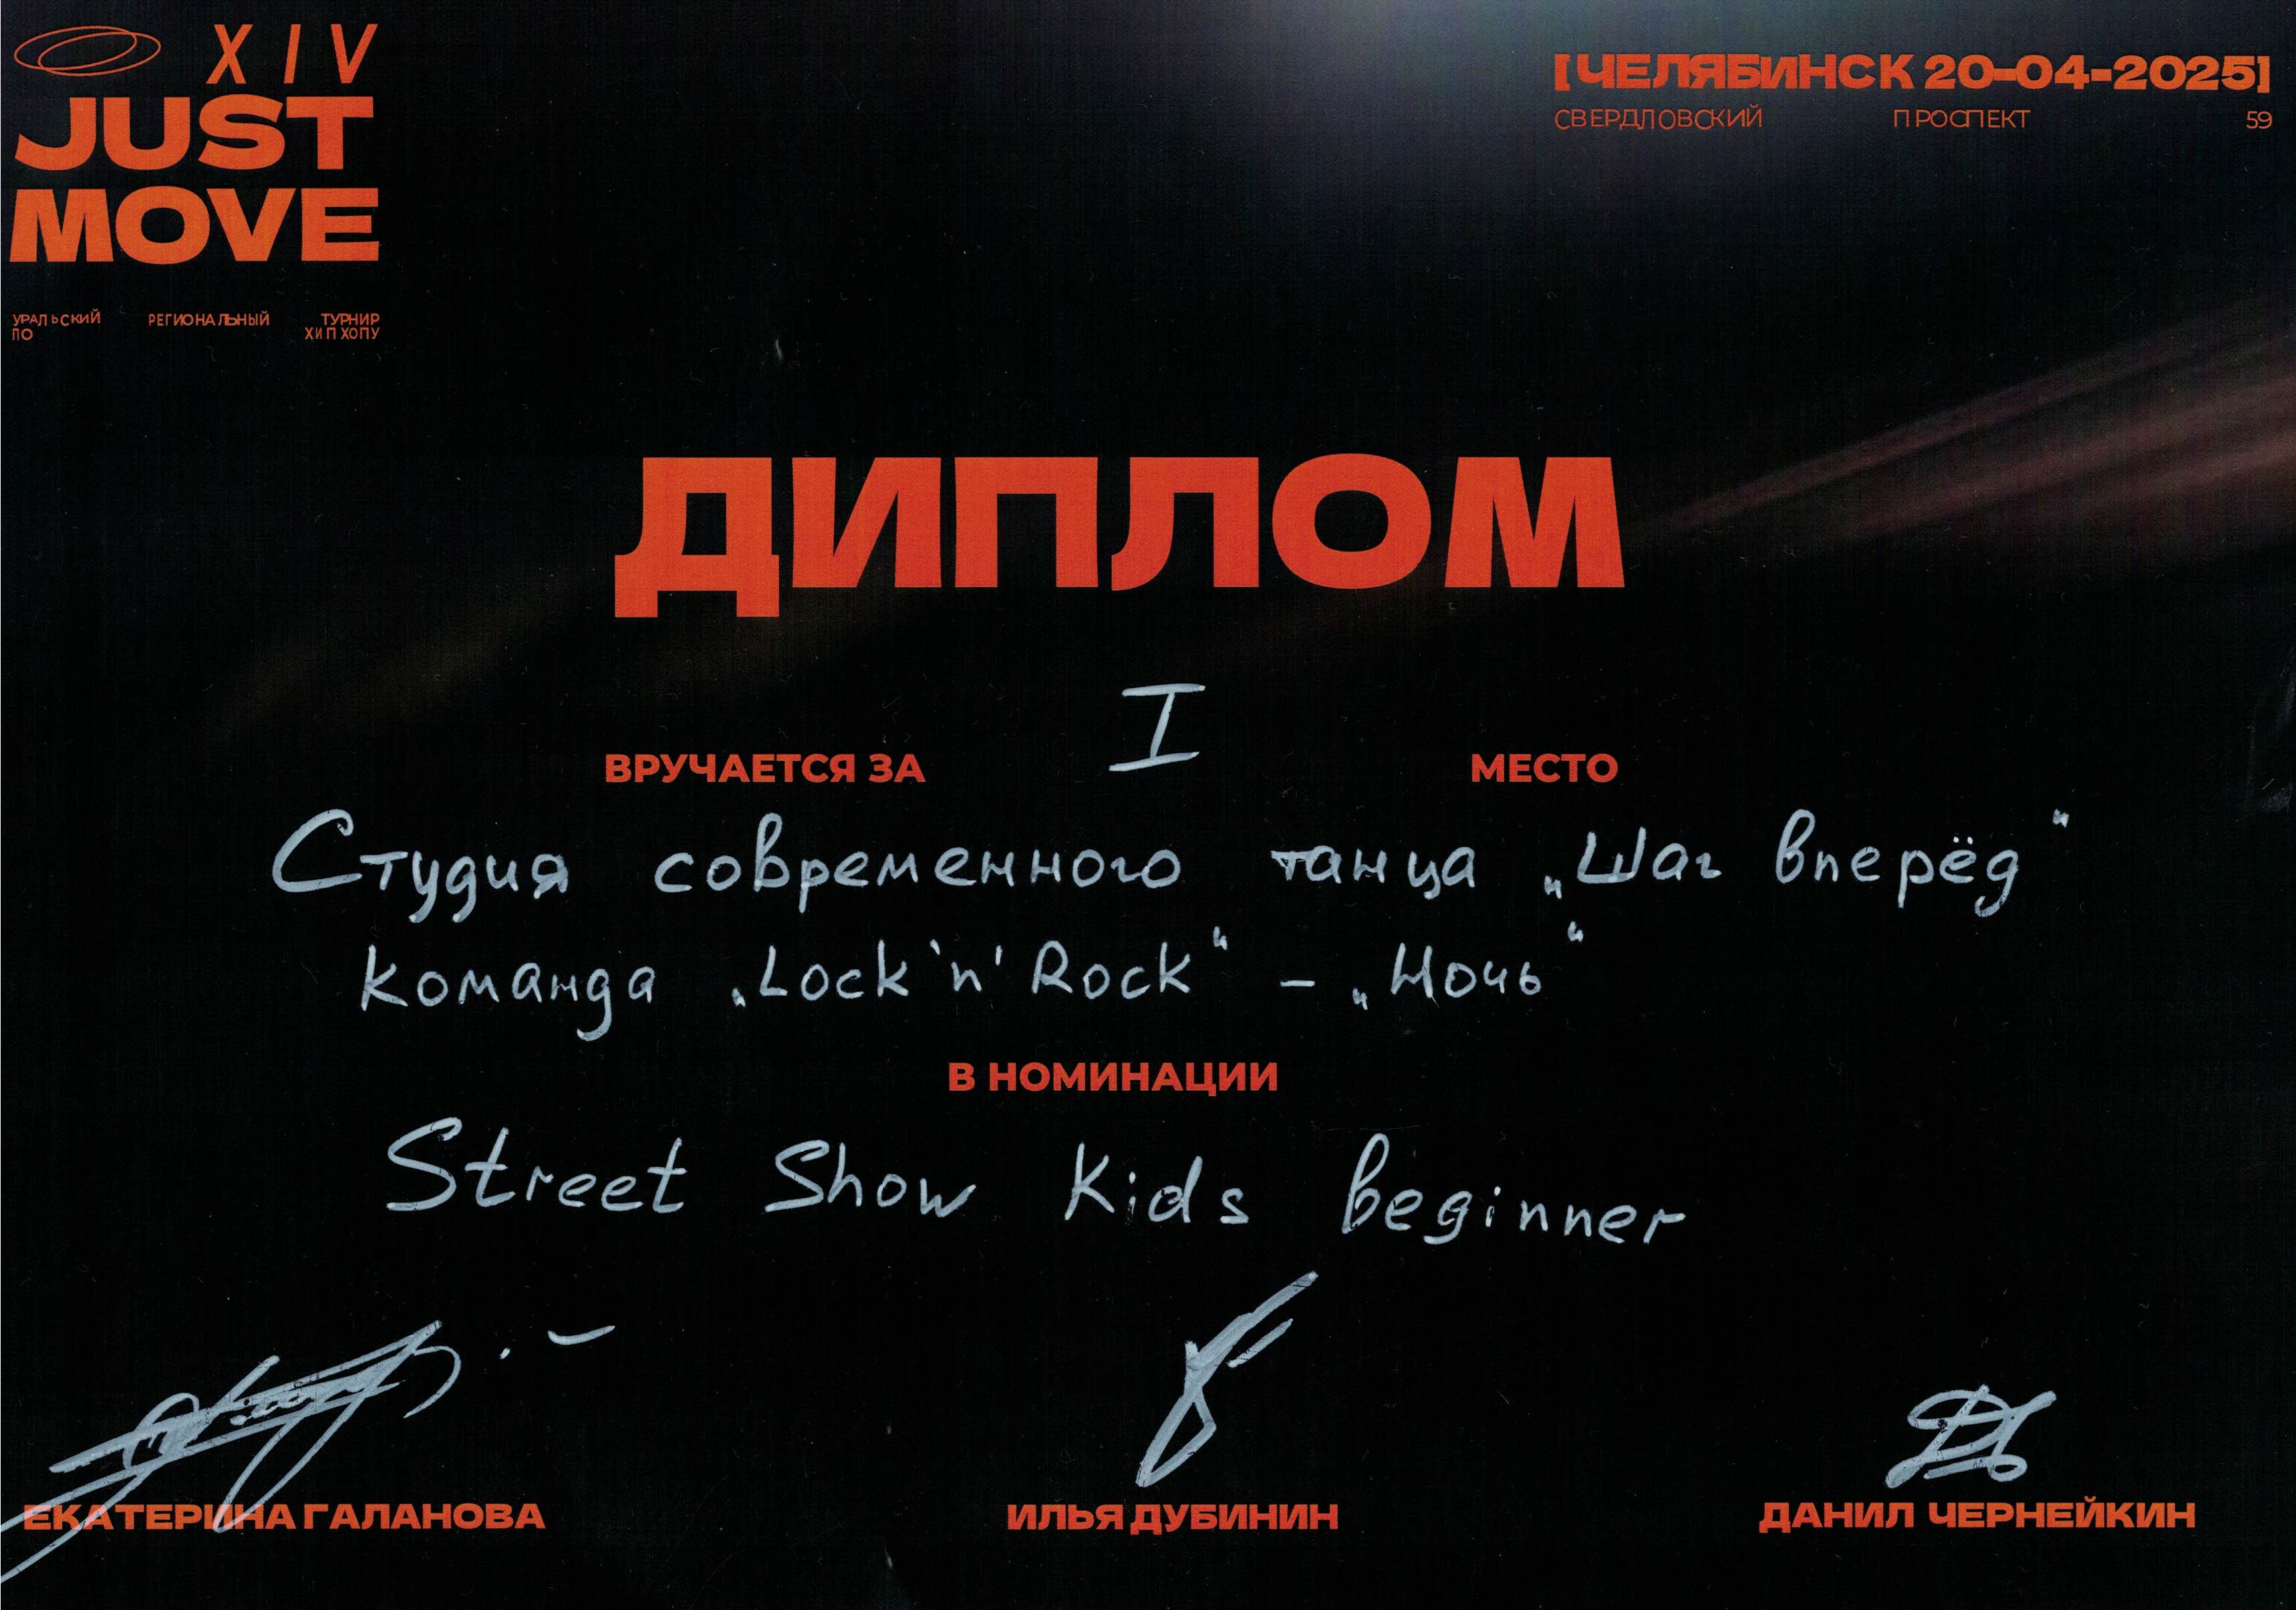 XIV
JUST
MOVE
УРАЛЬСКИЙ РЕГИОНАЛЬНЫЙ ТУРНИР
ПО ХИП ХОПУ
[ЧЕЛЯБИНСК 20-04-2025]
СВЕРДЛОВСКИЙ ПРОСПЕКТ 59
ДИПЛОМ
ВРУЧАЕТСЯ ЗА I МЕСТО
Студия современного танца „Шаг вперёд“
команда „Lock 'n' Rock“ – „Ночь“
В НОМИНАЦИИ
Street Show Kids beginner
ЕКАТЕРИНА ГАЛАНОВА ИЛЬЯ ДУБИНИН ДАНИЛ ЧЕРНЕЙКИН